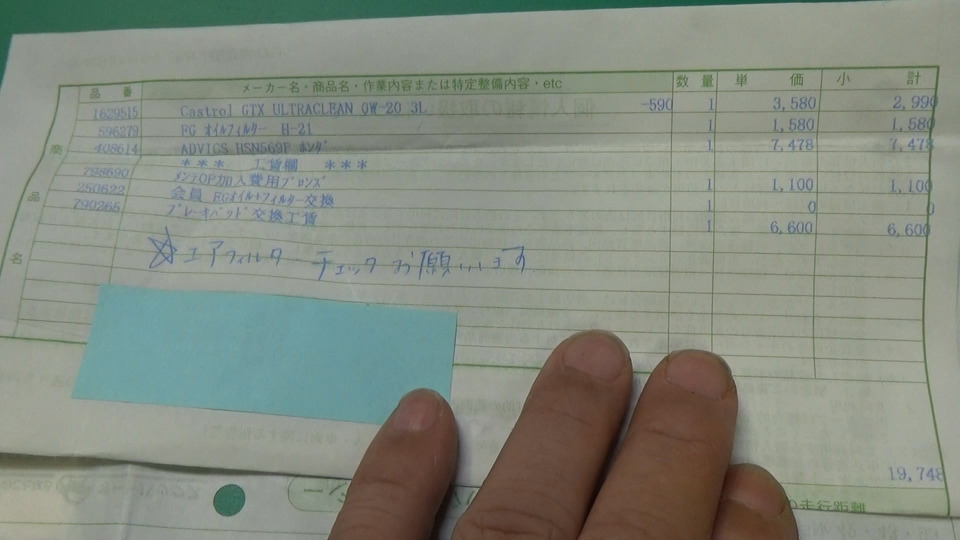 品 番 メーカー名・商品名・作業内容または特定整備内容・etc 数 量 単 価 小 計
1629515 Castrol GTX ULTRACLEAN 0W-20 3L -590 1 3,580 2,990
596279 FG オイルフィルター H-21 1 1,580 1,580
408614 ADVICS HSN569P ホンダ 1 7,478 7,478
*** 工賃欄 ***
798690 メンテOP加入費用ブロンズ 1 1,100 1,100
250622 会員 EGオイル+フィルター交換 1 0 0
790265 ブレーキパッド交換工賃 1 6,600 6,600
商
品
名
☆エアフィルターチェックお願いします
19,748
の走行距離